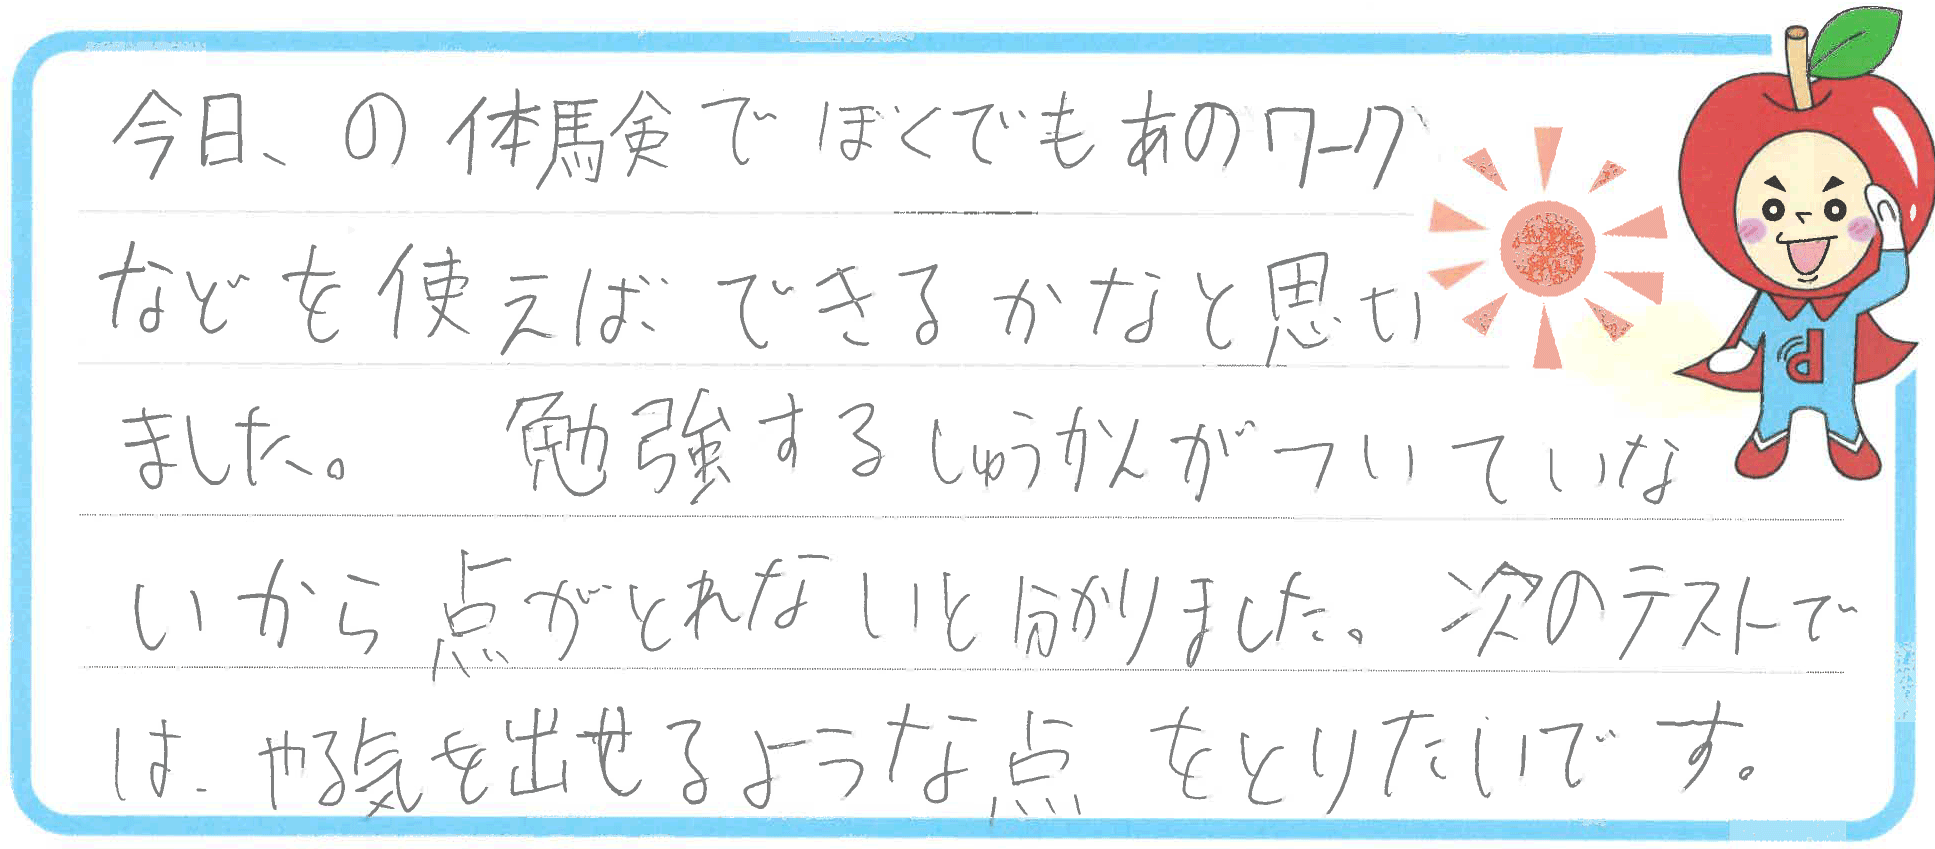 今日、の体験でぼくでもあのワーク
などを使えばできるかなと思い
ました。 勉強するしゅうかんがついていな
いから点がとれないと分かりました。次のテストで
は、やる気を出せるような点をとりたいです。